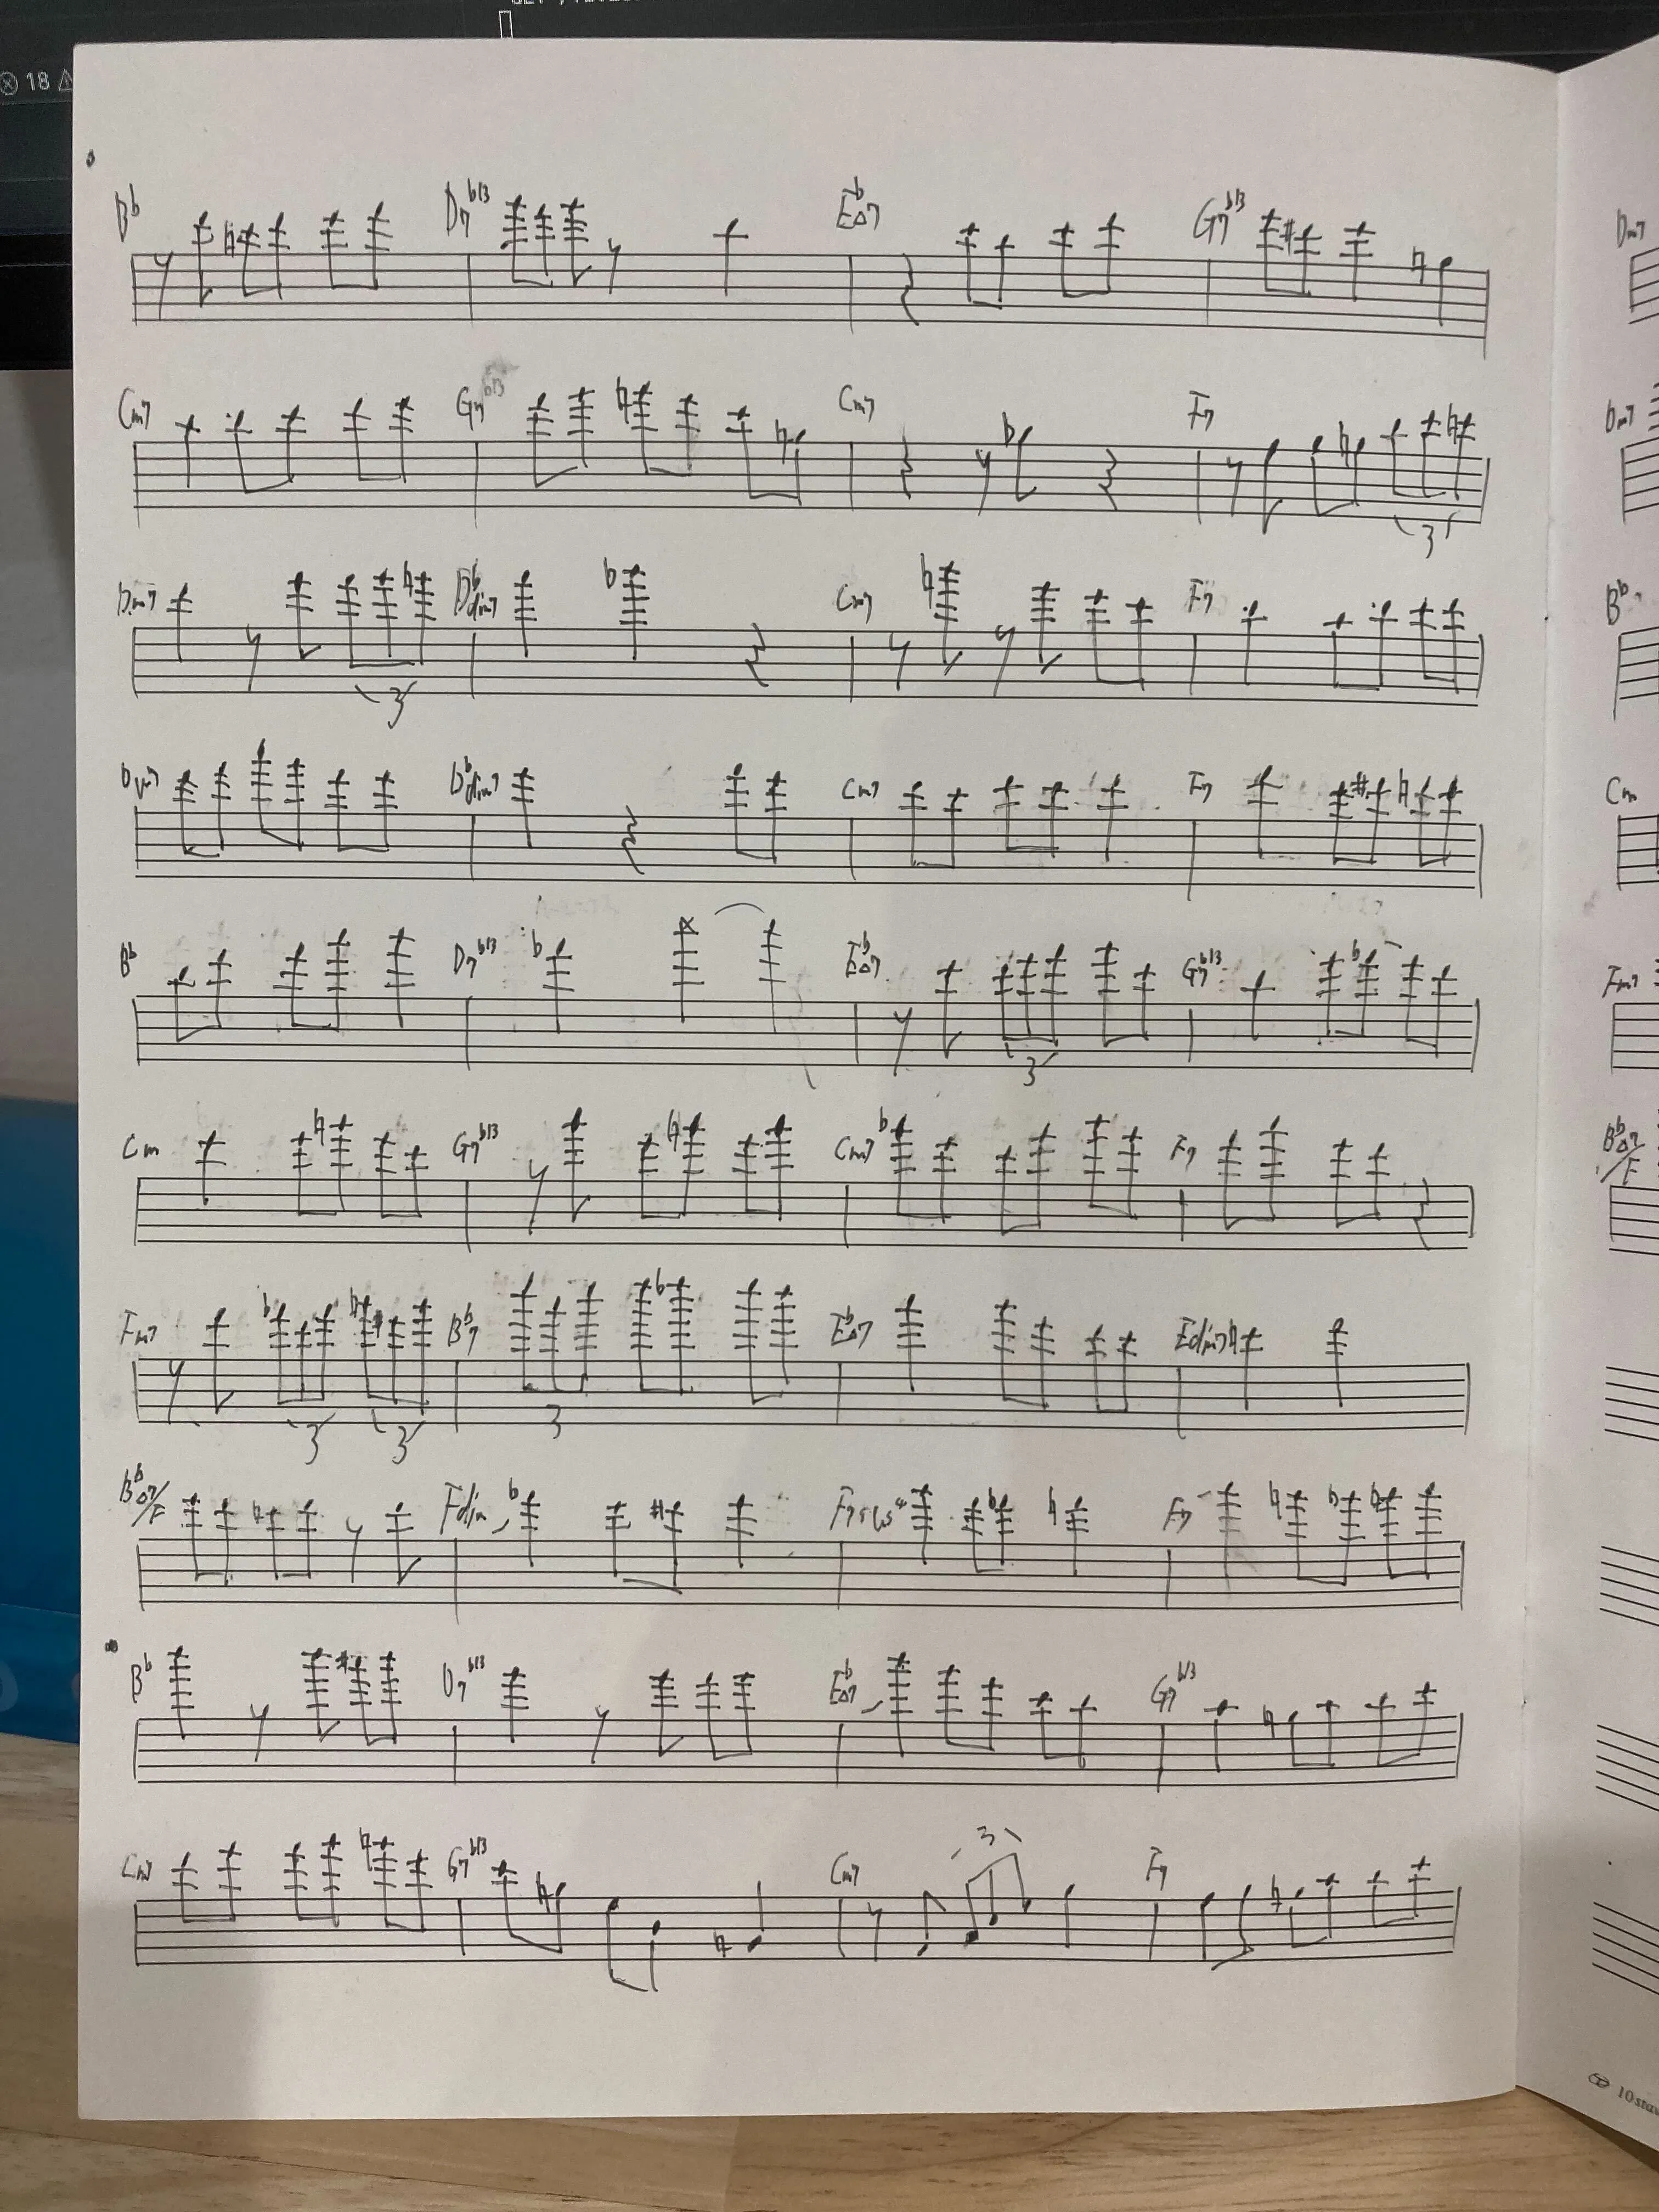 18
B♭ D7♭13 E♭△7 G7♭13
Cm7 G7♭13 Cm7 F7
3
Dm7 D♭dim7 Cm7 F7
3
Dm7 D♭dim7 Cm7 F7
B♭ D7♭13 E♭△7 G7♭13
3
Cm G7♭13 Cm7 F7
Fm7 B♭7 E♭△7 Edim7
3 3 3
B♭△7/F Fdim F7sus4 F7
B♭ D7♭13 E♭△7 G7♭13
3
Cm7 G7♭13 Cm7 F7
Dm7
Dm7
B♭
Cm
Fm7
B♭△7/F
10 stav